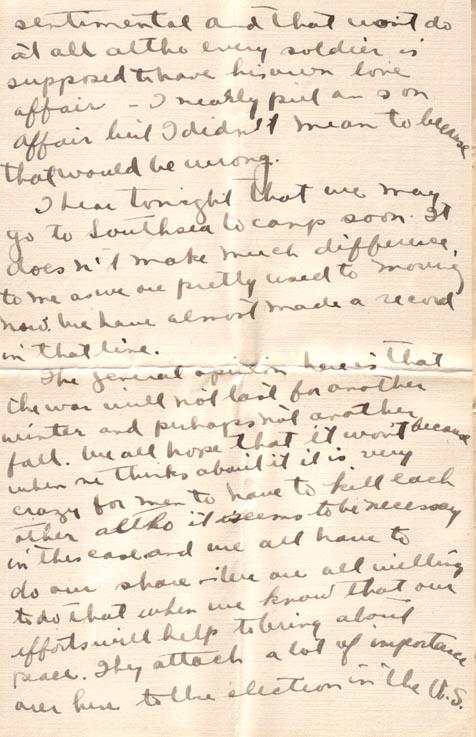 sentimental and that won't do
at all altho every soldier is
supposed to have his own love
affair - I nearly put an s on
affair but I didn't mean to because
that would be wrong.
I hear tonight that we may
go to Southsea to camp soon. It
does n't make much difference
to me as we are pretty used to moving
now. We have almost made a record
in that line.
The general opinion here is that
the war will not last for another
winter and perhaps not another
fall. We all hope that it won't because
when one thinks about it it is very
crazy for men to have to kill each
other altho it seems to be necessey
in this case and we all have to
do our share - We are all willing
to do that when we know that our
efforts will help to bring about
peace. They attach a lot of importance
over here to the election in the U.S.